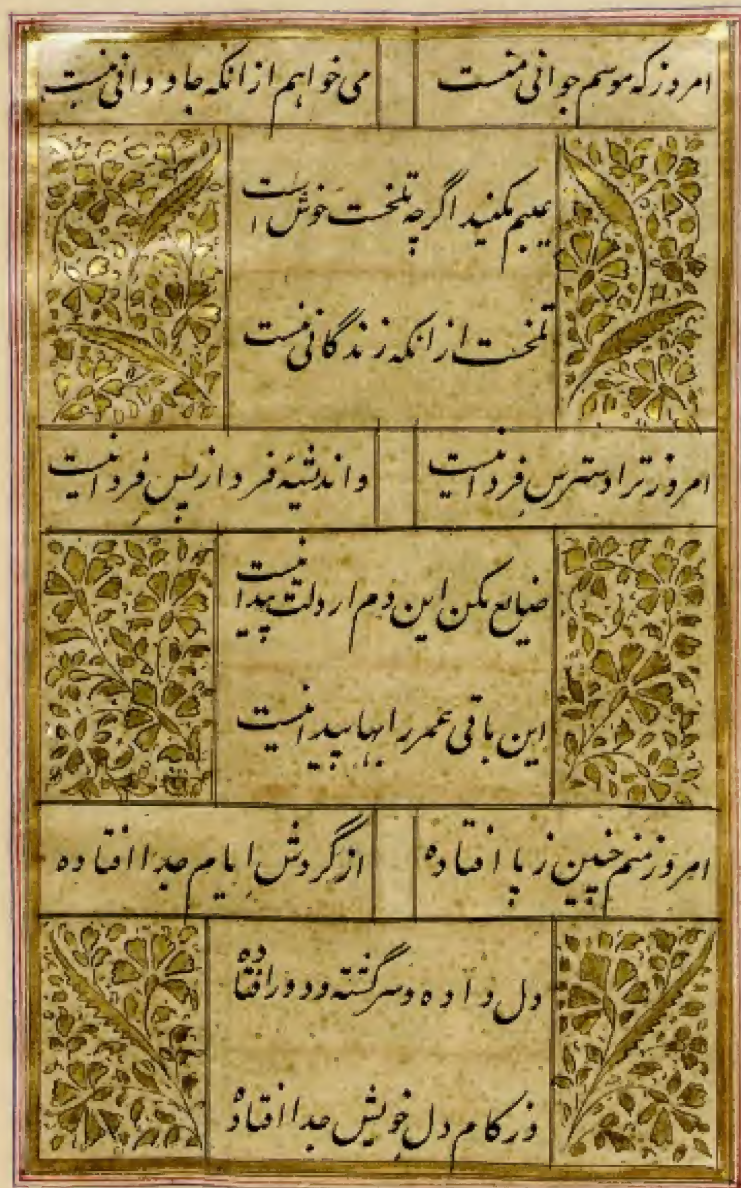 امروز که موسم جوانی منست
می خواهم ازانکه جاودانی منست
عیبم مکنید اگرچه تلخست خوش است
تلخست ازانکه زندگانی منست
امروز ترا دسترس فردا نیست
واندیشهٔ فردا ز پس فردا نیست
ضایع مکن این دم ار دلت پیدا نیست
این باقی عمر را بها پیدا نیست
امروز منم چنین ز پا افتاده
از گردش ایام جدا افتاده
دل داده و سرگشته و دور افتاده
وز کام دل خویش جدا افتاده